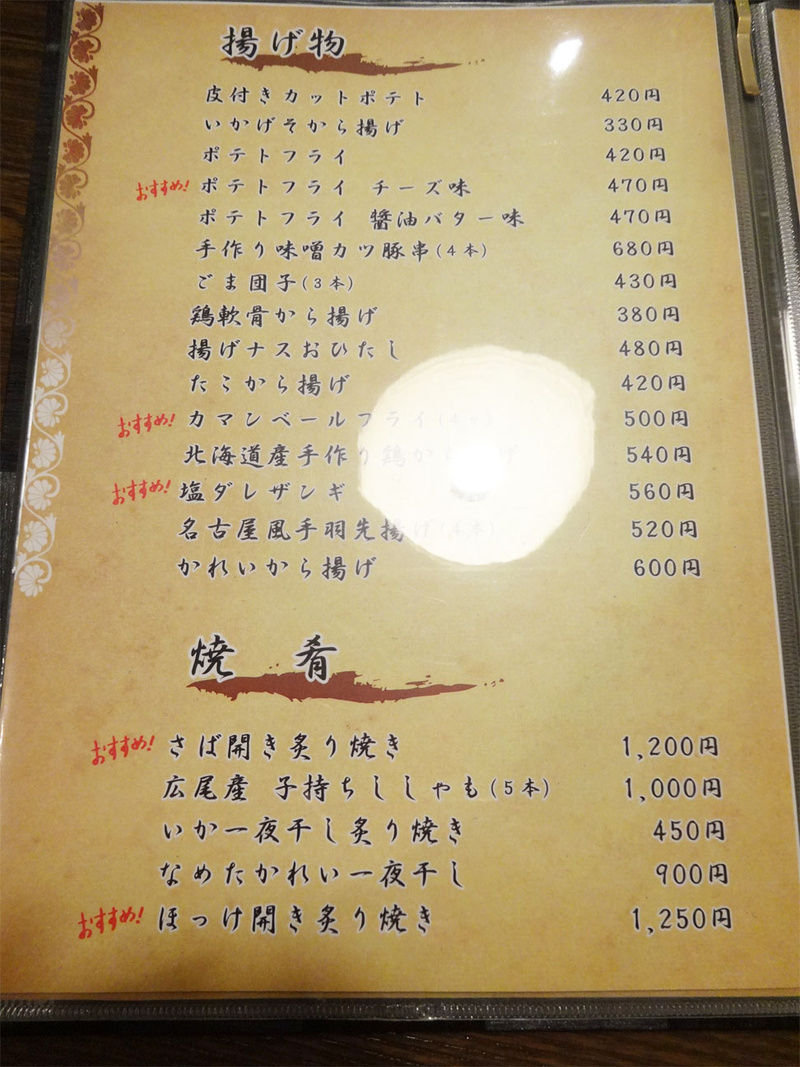 揚げ物
皮付きカットポテト 420円
いかげそから揚げ 330円
ポテトフライ 420円
おすすめ! ポテトフライ チーズ味 470円
ポテトフライ 醤油バター味 470円
手作り味噌カツ豚串(4本) 680円
ごま団子(3本) 430円
鶏軟骨から揚げ 380円
揚げナスおひたし 480円
たこから揚げ 420円
おすすめ! カマンベールフライ 500円
北海道産手作り鶏から揚げ 540円
おすすめ! 塩ダレザンギ 560円
名古屋風手羽先揚げ(4本) 520円
かれいから揚げ 600円
焼 肴
おすすめ! さば開き炙り焼き 1,200円
広尾産 子持ちししゃも(5本) 1,000円
いか一夜干し炙り焼き 450円
なめたかれい一夜干し 900円
おすすめ! ほっけ開き炙り焼き 1,250円